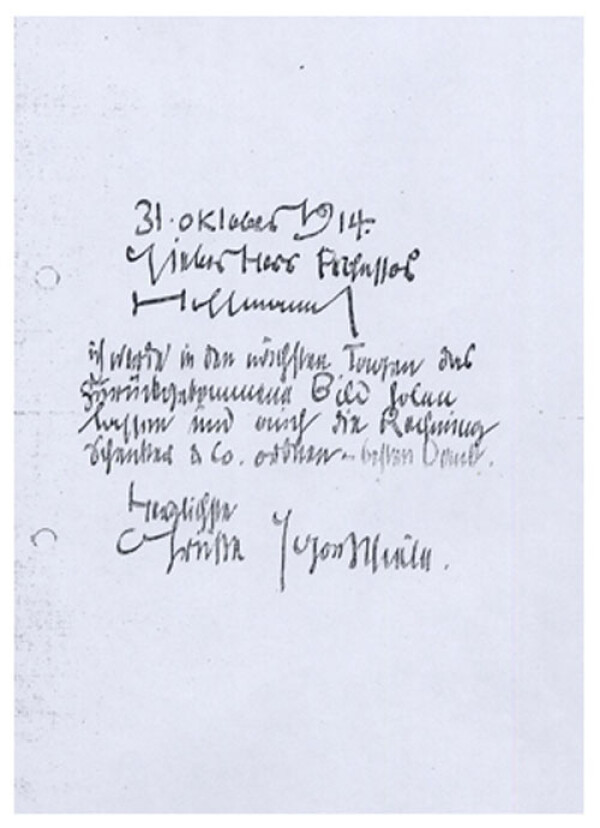 31. oktober 1914.
Lieber Herr Professor
Hoffmann!
ich werde in den nächsten Tagen das
zurückgekommene Bild holen
lassen und auch die Rechnung
Schenker & Co. ordnen – besten Dank.
Herzlichste
Grüße Egon Schiele.